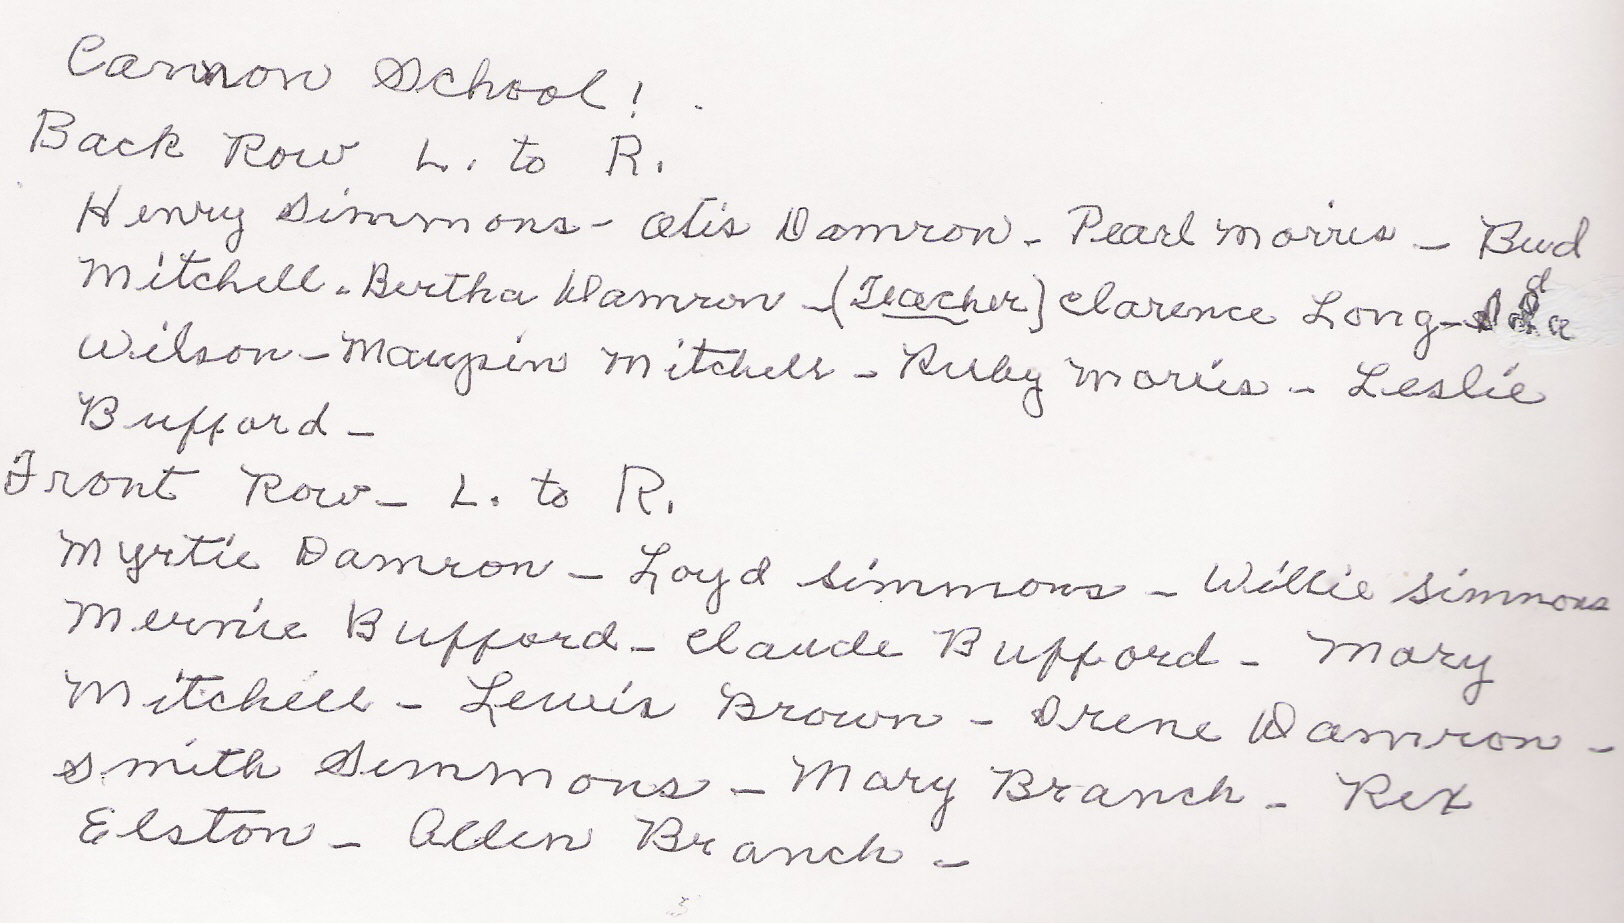 Cannon School!
Back Row L. to R.
Henry Simmons - Otis Damron - Pearl Morris - Bud
Mitchell - Bertha Damron - (Teacher) Clarence Long -
Wilson - Maupin Mitchell - Ruby Morris - Leslie
Bufford -
Front Row - L. to R.
Myrtie Damron - Loyd Simmons - Willie Simmons
Mernie Bufford - Claude Bufford - Mary
Mitchell - Lewis Brown - Irene Damron -
Smith Simmons - Mary Branch - Rex
Elston - Allen Branch -